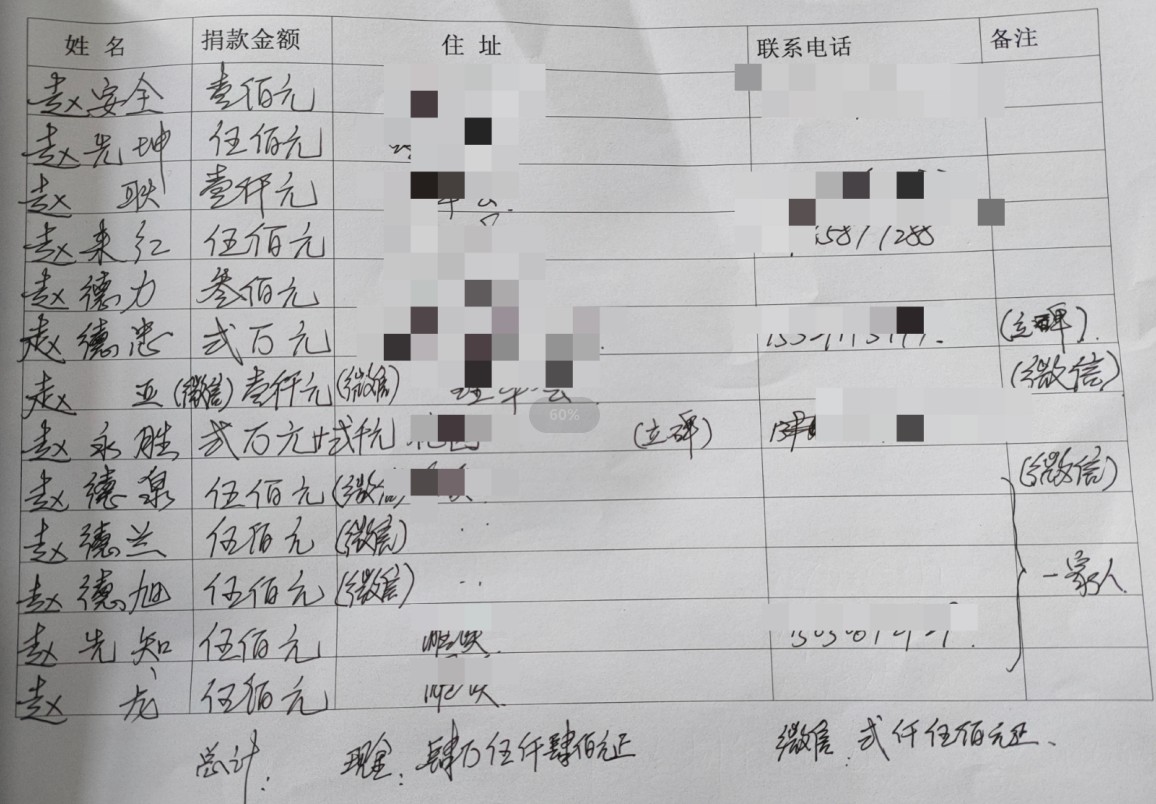 姓名 捐款金额 住址 联系电话 备注
赵安全 壹佰元
赵先坤 伍佰元
赵耿 壹仟元
赵来红 伍佰元 1581/288
赵德力 叁佰元
赵德忠 贰万元 (立碑).
赵亚(微信) 壹仟元(微信) (微信)
60%
赵永胜 贰万元廿贰千元 (立碑)
赵德泉 伍佰元 (微信)
赵德兰 伍佰元(微信)
赵德旭 伍佰元(微信) 一家人
赵先知 伍佰元
赵龙 伍佰元
总计. 现金:肆万伍仟肆佰元正 微信:贰仟伍佰元正.